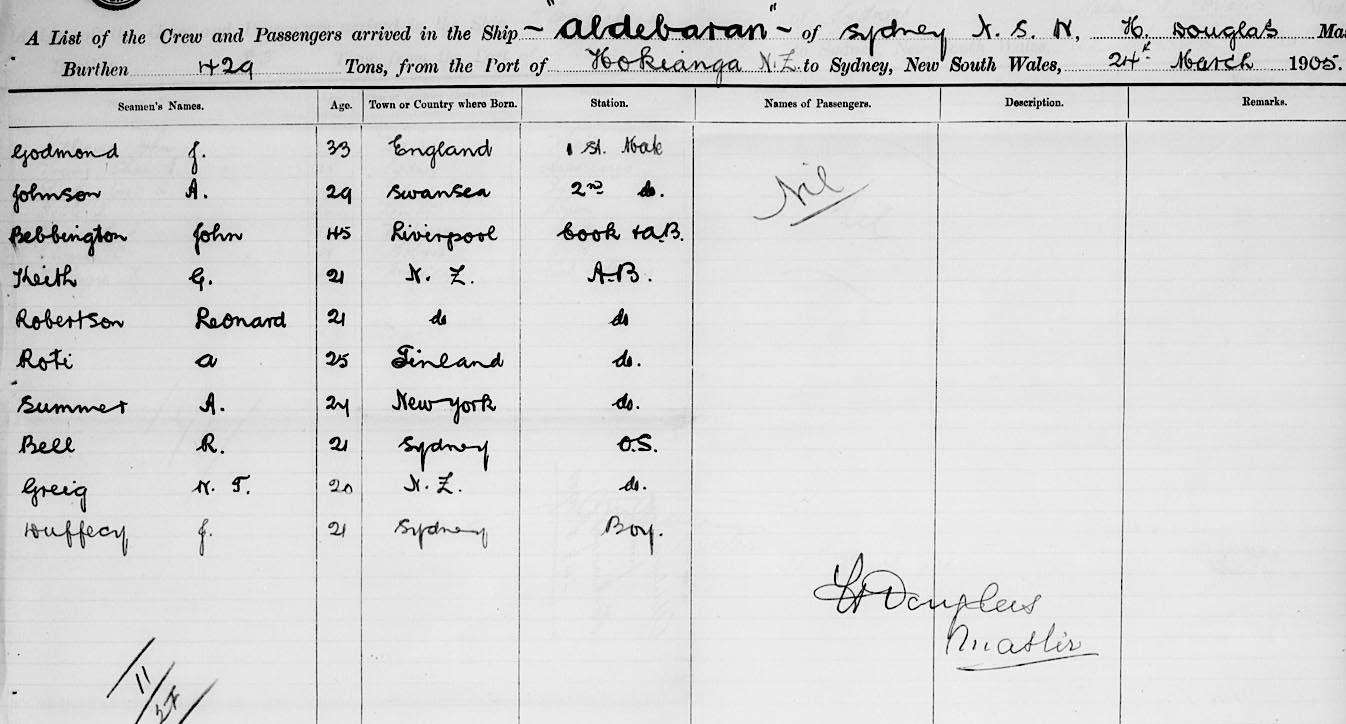 A List of the Crew and Passengers arrived in the Ship "Aldebaran" of Sydney N. S. W, H. Douglas Ma
Burthen 429 Tons, from the Port of Hokianga N.Z to Sydney, New South Wales, 24th March 1905.
Seamen's Names. Age. Town or Country where Born. Station. Names of Passengers. Description. Remarks.
Godmond J. 33 England 1 St. Mate
Johnson A. 29 Swansea 2nd do. Nil
Bebbington John 45 Liverpool Cook & A.B.
Keith G. 21 N. Z. A.B.
Robertson Leonard 21 do do
Roti A 25 Finland do.
Summer A. 24 New York do.
Bell R. 21 Sydney O.S.
Greig N. T. 20 N. Z. do.
J. 21 Sydney Boy.
H Douglas
Master
11/24